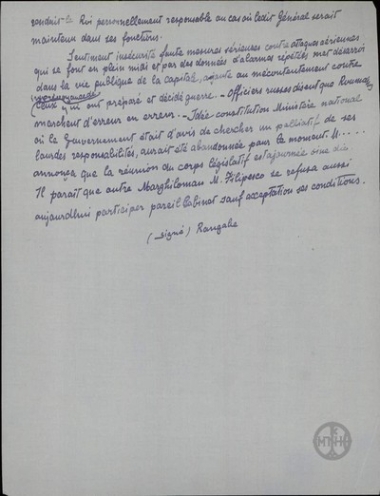 rendrait le Roi personnellement responsable au cas où ledit Général serait
maintenu dans ses fonctions.
Sentiment insécurité faute mesures sérieuses contre attaques aériennes
qui se font en plein midi et par des données d'alarmes répétées met désarroi
dans la vie publique de la Capitale, ajoute au mécontentement contre
ceux qui ont préparé et décidé guerre. - Officiers russes disent que Roumains
marchent d'erreur en erreur. - Idée constitution Ministère national
où le Gouvernement était d'avis de chercher un palliatif de ses
lourdes responsabilités, aurait été abandonnée pour le moment. M....
annonça que la réunion du corps législatif est ajournée sine die
Il paraît que outre Marghiloman M. Filipesco se refusa aussi
aujourd'hui participer pareil Cabinet sauf acceptation ses conditions.
(signé) Rangabe